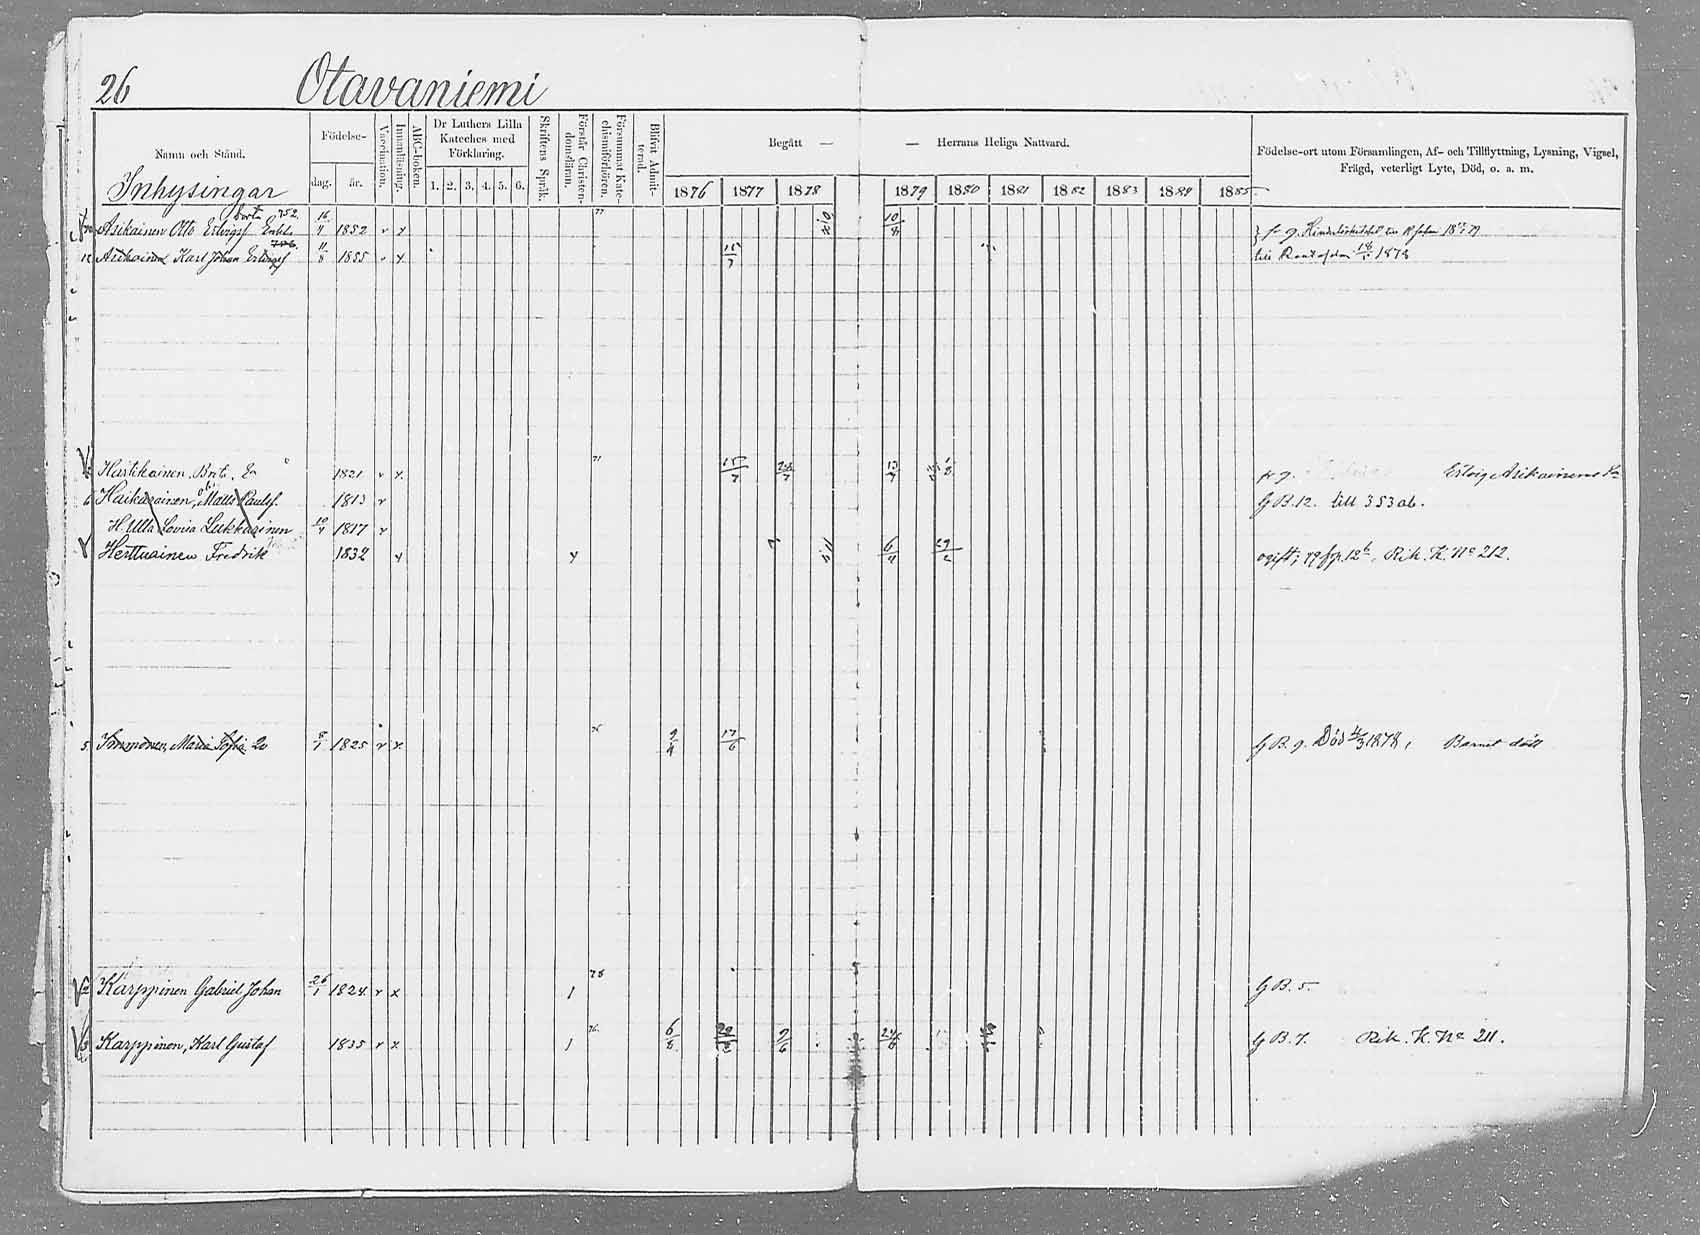 26 Otavaniemi
Namn och Stånd.
Födelse-
dag.
år.
Vaccination.
Innanläsning.
ABC-boken.
Dr Luthers Lilla
Kateches med
Förklaring.
1. 2. 3. 4. 5. 6.
Skriftens Språk.
Förstår Christen-
domsläran.
Försummat Kate-
chismiförhören.
Blifvit Admit-
terad.
Begått — — Herrans Heliga Nattvard.
1876 1877 1878 1879 1880 1881 1882 1883 1884 1885
Födelse-ort utom Församlingen, Af- och Tillflyttning, Lysning, Vigsel,
Frägd, veterligt Lyte, Död, o. a. m.
Inhysingar
borta 752.
Asikainen Otto Ersigsf Enkl. 16/4 1852 v x 10/8
Asikainen Karl Johan Ersigsf 11/8 1855 v x 15/7 1878
Hartikainen Brit. En 1821 v x 71 15/7 13/7 Asikainens
6 Haikarainen, Matts Paulsf. 1813 v GB.12. till 353ab.
H. Ulla Lovisa Lukkarinen 10/4 1817 v
Herttuainen Fredrik 1832 x x 6/4 29/2 ogift; Rik. K. No 212.
5 Immonen, Maria Sofia 8/1 1825 v x 9/4 17/6 GB. 9. Död 1878, Barnet dött
Karppinen Gabriel Johan 26/1 1824 v x 1 78 GB. 5.
Karppinen, Karl Gustaf 1835 v x 1 76. 6/8 9/6 GB. 7. Rik. K. No 211.